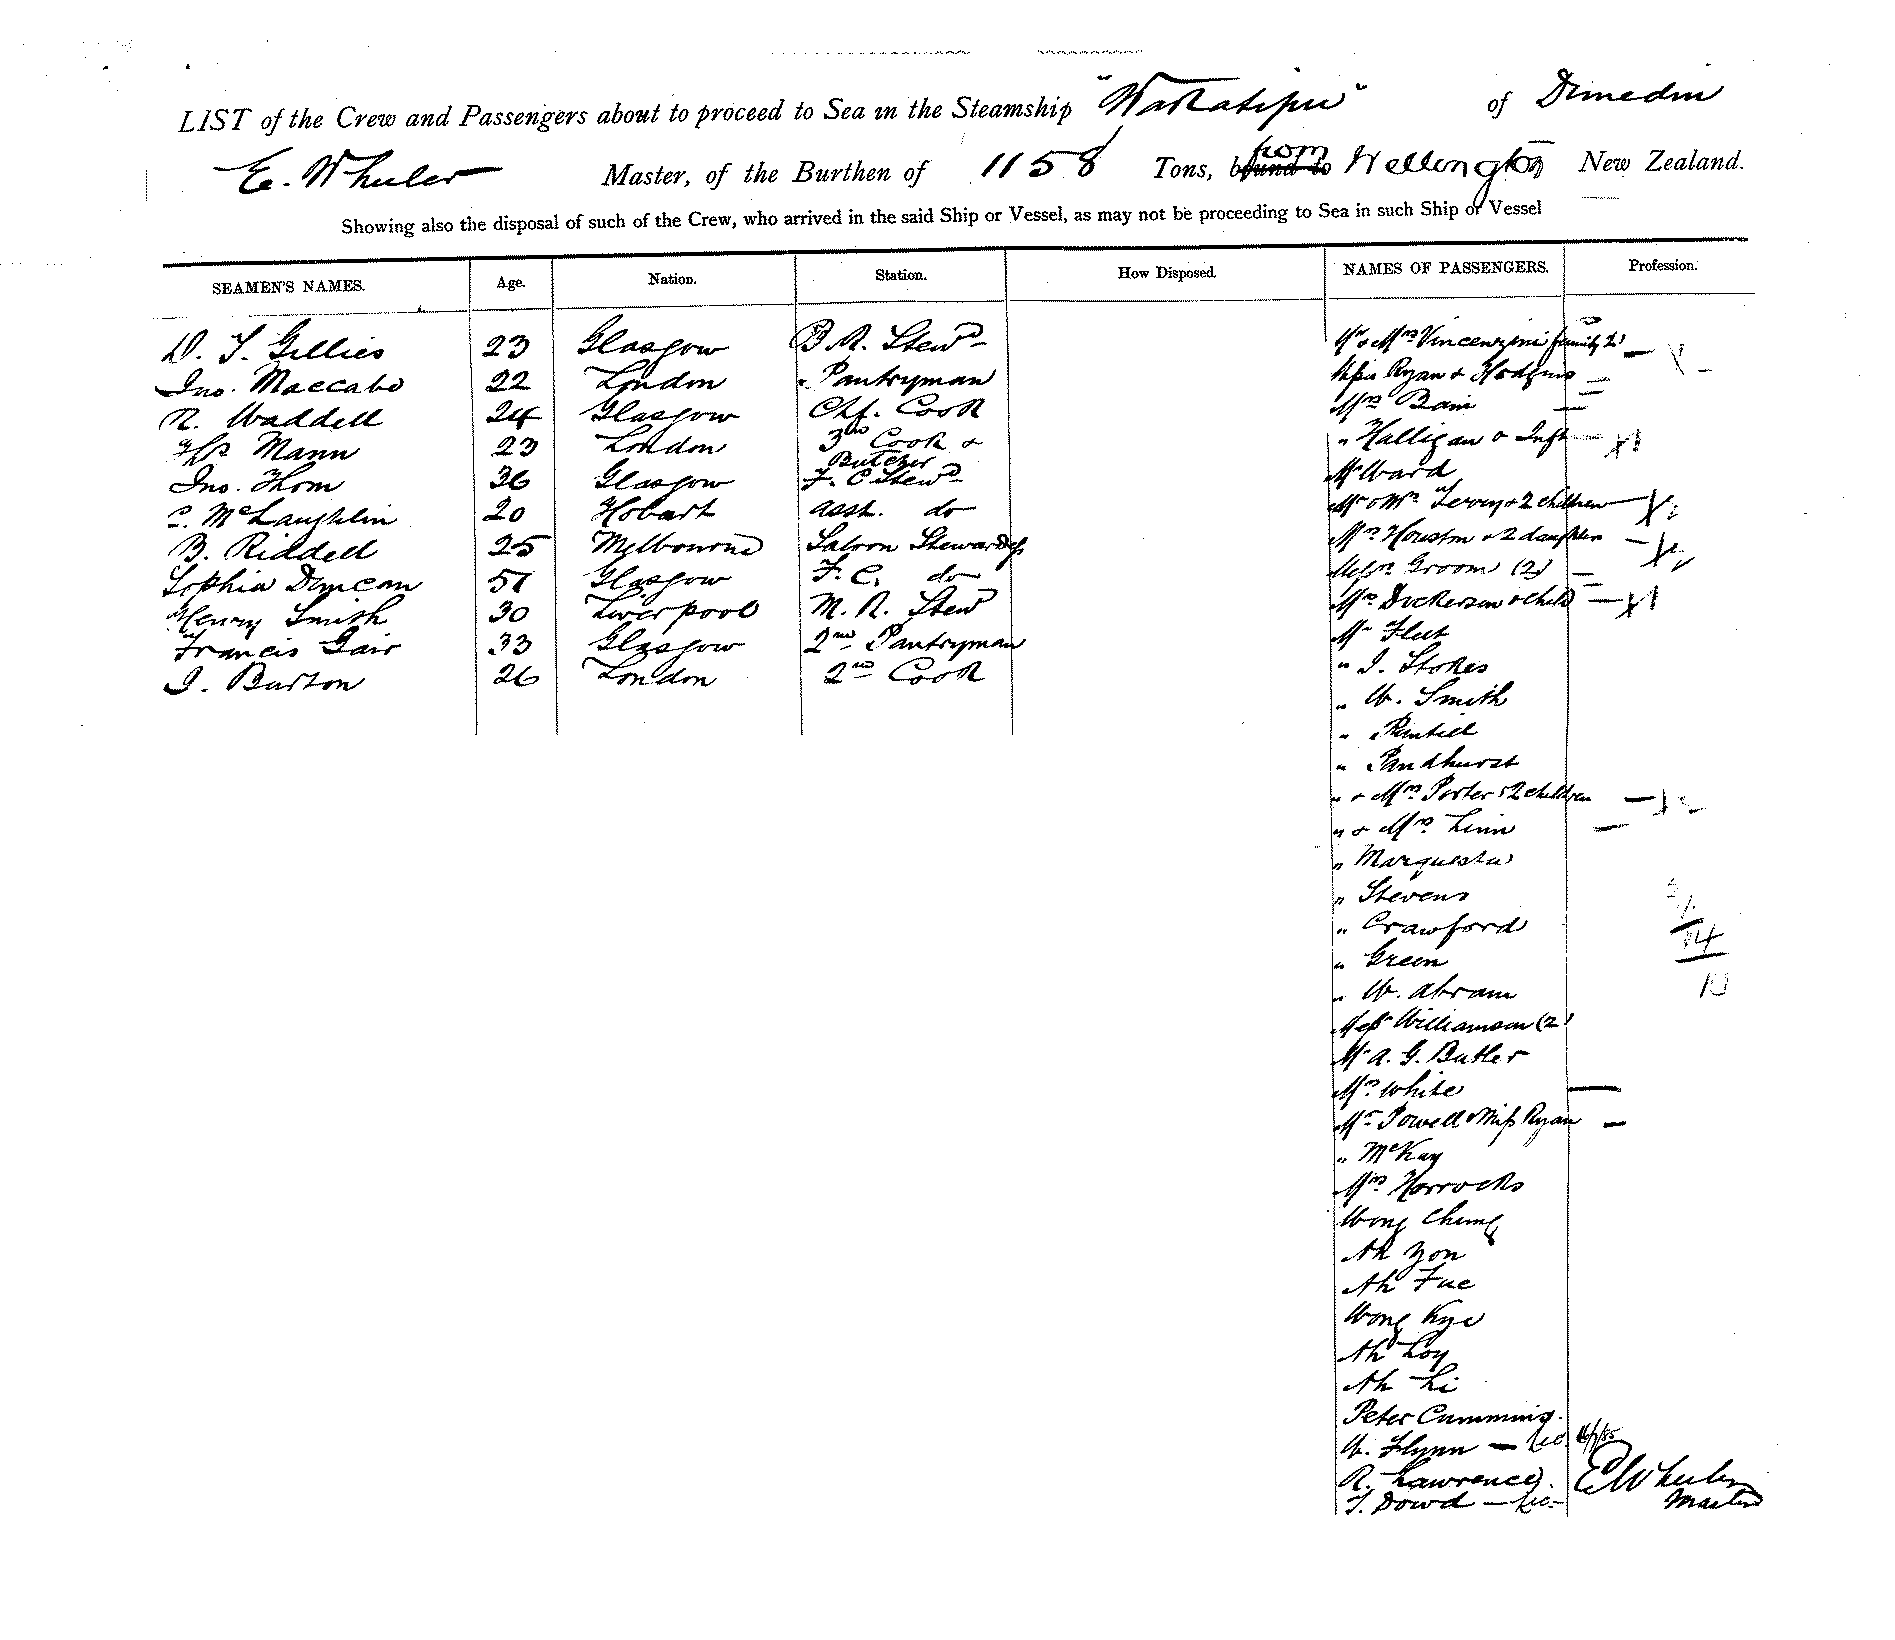 LIST of the Crew and Passengers about to proceed to Sea in the Steamship "Wakatipu" of Dunedin
E. Wheeler Master, of the Burthen of 1158 Tons, bound to from Wellington New Zealand.
Showing also the disposal of such of the Crew, who arrived in the said Ship or Vessel, as may not be proceeding to Sea in such Ship or Vessel
SEAMEN'S NAMES. Age. Nation. Station. How Disposed. NAMES OF PASSENGERS. Profession.
D. T. Gillies 23 Glasgow B. R. Stewd
Jno. Maccabe 22 London Pantryman
R. Waddell 24 Glasgow Chf. Cook
Thos Mann 23 London 3rd Cook & Butcher
Jno. Thom 36 Glasgow F. C Stewd
McLaughlin 20 Hobart asst. do
B. Riddell 25 Melbourne Saloon Stewardess
Sophia Duncan 51 Glasgow F. C. do
Henry Smith 30 Liverpool M. R. Stewd
Francis Gair 33 Glasgow 2nd Pantryman
J. Burton 26 London 2nd Cook
Mr & Mrs Vincenzini family 2
Miss Ryan & Hodgins
Mrs Bain
" Halligan & Inft
Mr Ward
Mr & Mrs Terry & 2 children
Mrs Houston & 2 daughters
Messrs Groom (2)
Mrs Dickerson & Child
Mr Flut
" J. Stokes
" W. Smith
"
" Pandhurst
" & Mrs Porter & 2 children
" & Mrs Linn
"
" Stevens
" Crawford
" Green
" W. Abram
Messrs Williamson (2)
Mr A. G. Butler
Mrs White
Mr Powell & Miss Ryan
" McKay
Mrs Horrocks
Wong Chung
Ah Yon
Ah Fue
Wong Kye
Ah Loy
Ah Li
Peter Cumming.
W. Flynn
R. Lawrence
T. Dowd
E Wheeler
Master